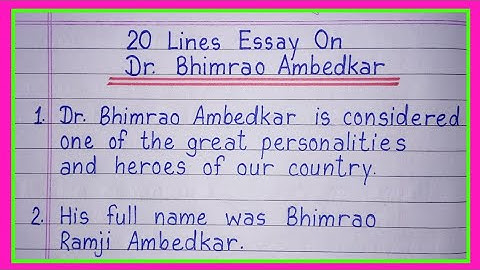 20 Lines Essay On
Dr. Bhimrao Ambedkar
1. Dr. Bhimrao Ambedkar is considered
one of the great personalities
and heroes of our country.
2. His full name was Bhimrao
Ramji Ambedkar.